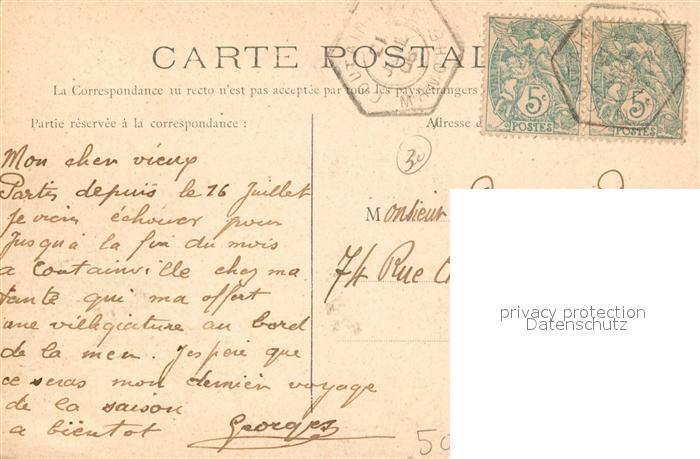 CARTE POSTAL
La Correspondance au recto n'est pas acceptée par tous les pays étrangers
Partie réservée à la correspondance :
Adresse d
COUTAINVILLE
MANCHE
5c
POSTES
5c
POSTES
30
Mon cher vieux
Partis depuis le 16 Juillet
je viens échouer pour
Jusqu'à la fin du mois
a Coutainville chez ma
tante qui ma offert
une villégiature au bord
de la mer. J'espère que
ce seras mon dernier voyage
de la saison
a bientot Georges
Monsieur
74 Rue
50
privacy protection
Datenschutz